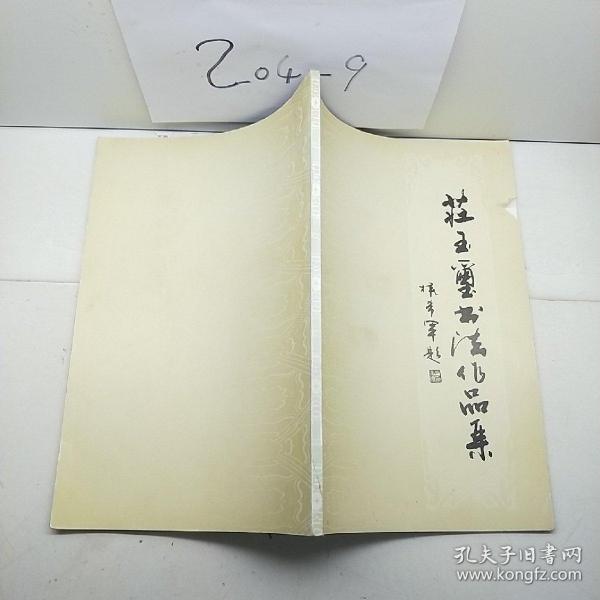 204-9
莊玉璽书法作品集
题
孔夫子旧书网
www.kongfz.com